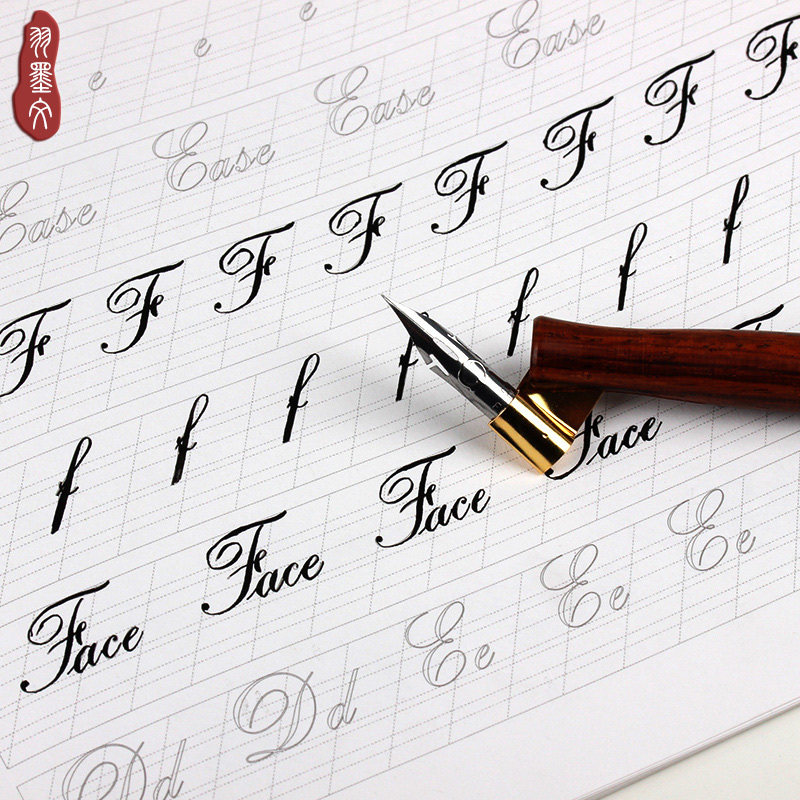 羽墨文
e e e
Ease Ease Ease Ease
F F F F F F F F
f f f f f f f
Face Face Face Face
Dd Dd Ee Ee Ee